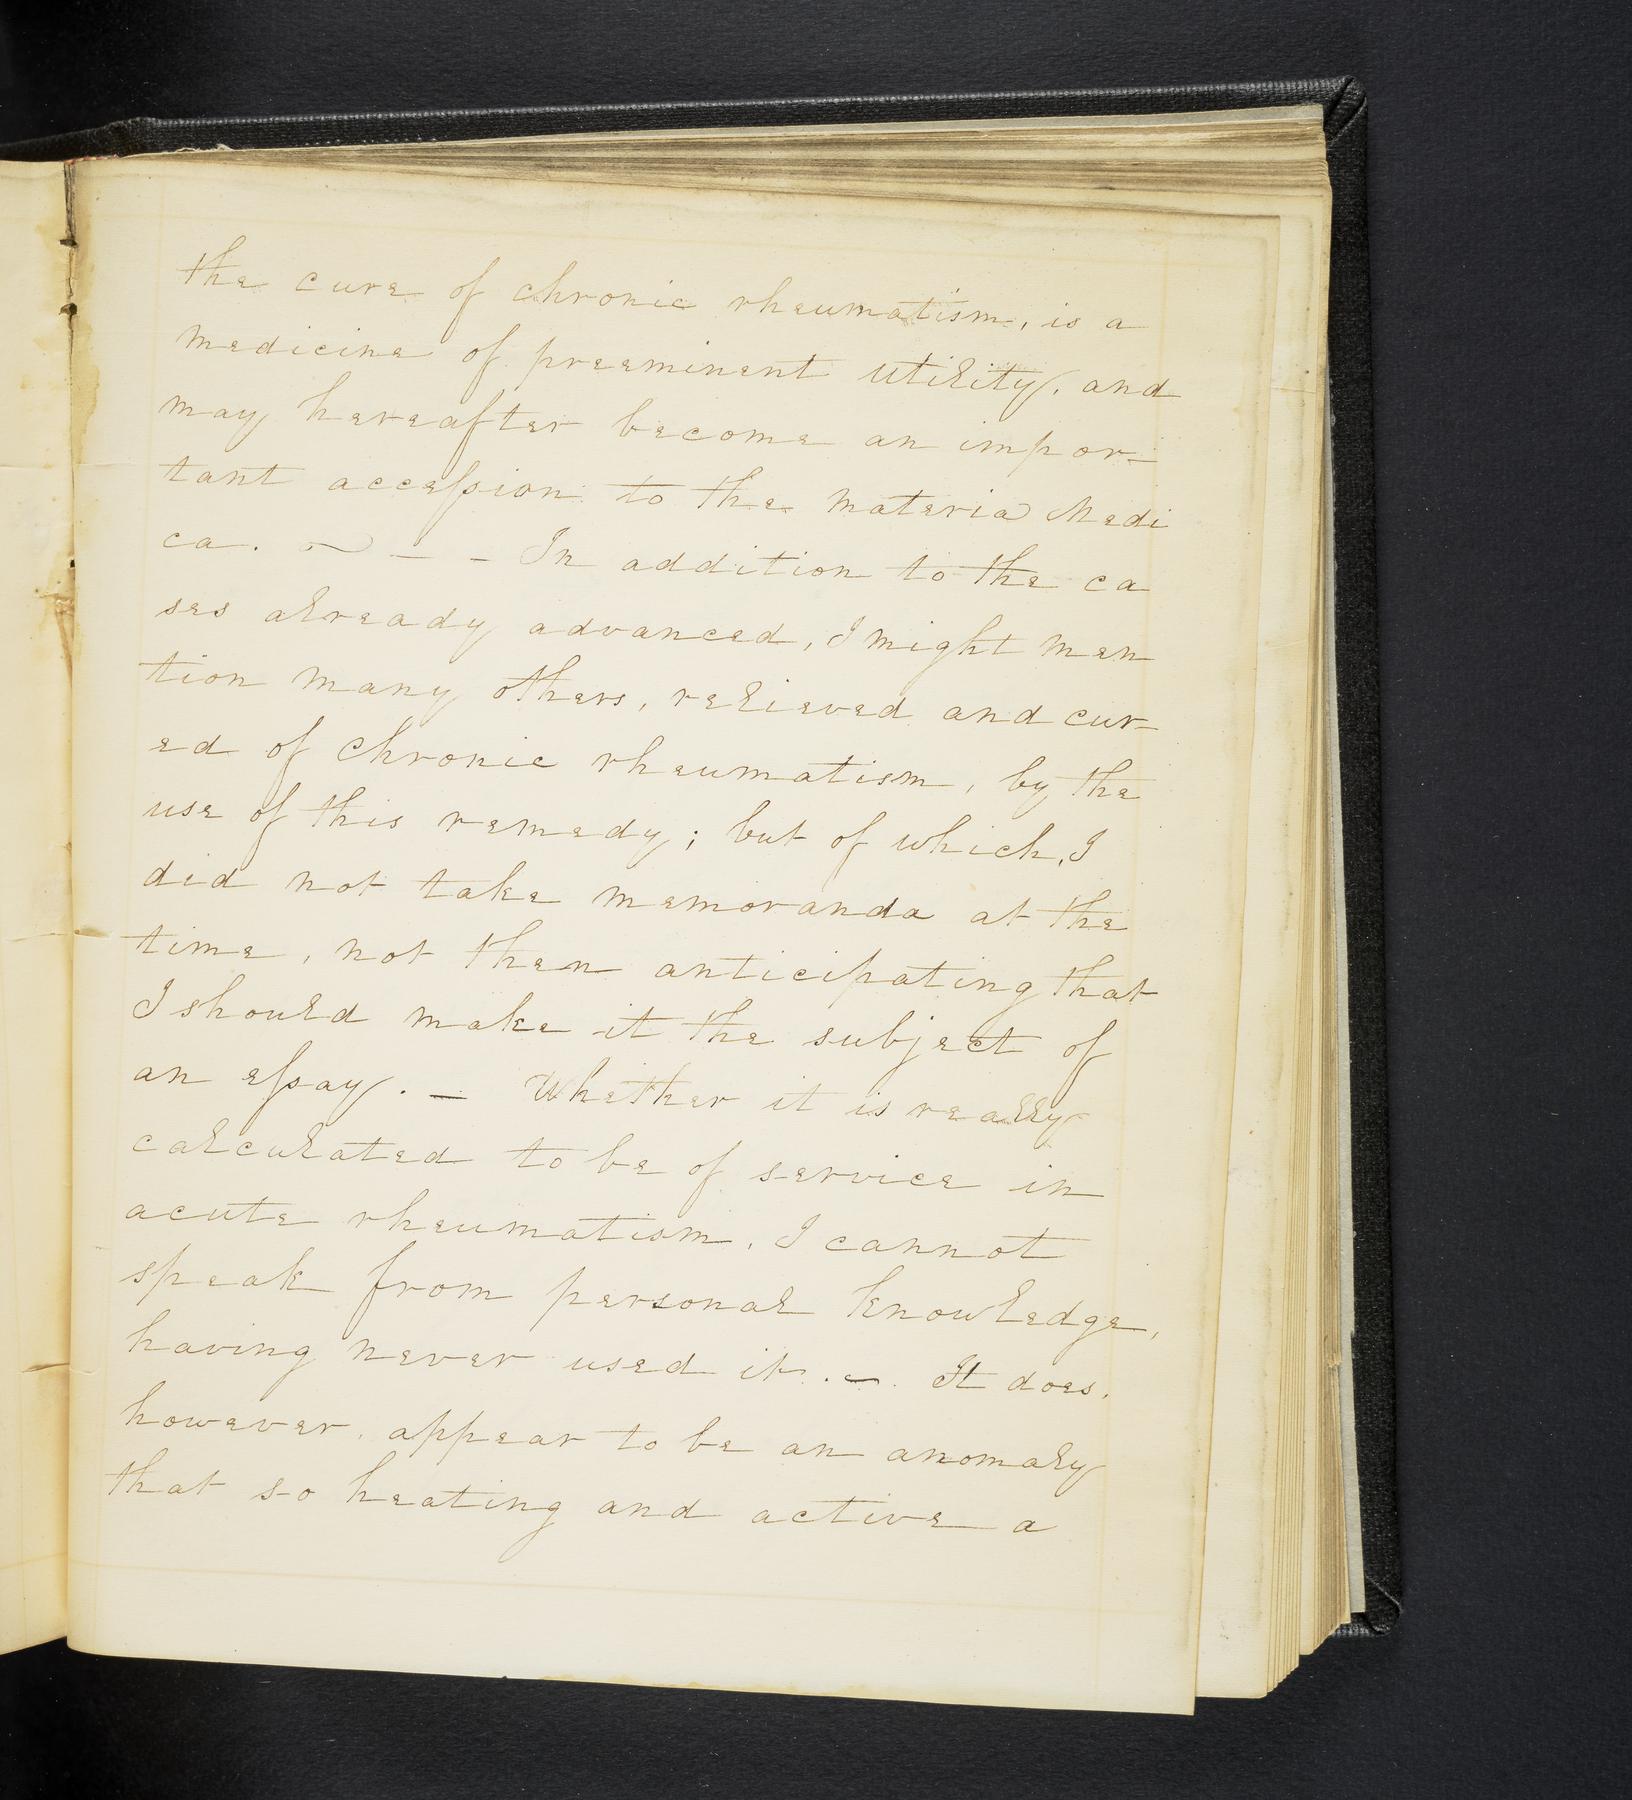 the cure of chronic rheumatism, is a
medicine of preeminent utility, and
may hereafter become an impor-
tant acceſsion to the materia Medi
ca. ~ — - In addition to the ca
ses already advanced, I might men
tion many others, relieved and cur-
ed of chronic rheumatism, by the
use of this remedy; but of which, I
did not take memoranda at the
time, not then anticipating that
I should make it the subject of
an eſsay. — Whether it is really
calculated to be of service in
acute rheumatism, I cannot
speak from personal knowledge,
having never used it. — It does,
however, appear to be an anomaly
that so heating and active a